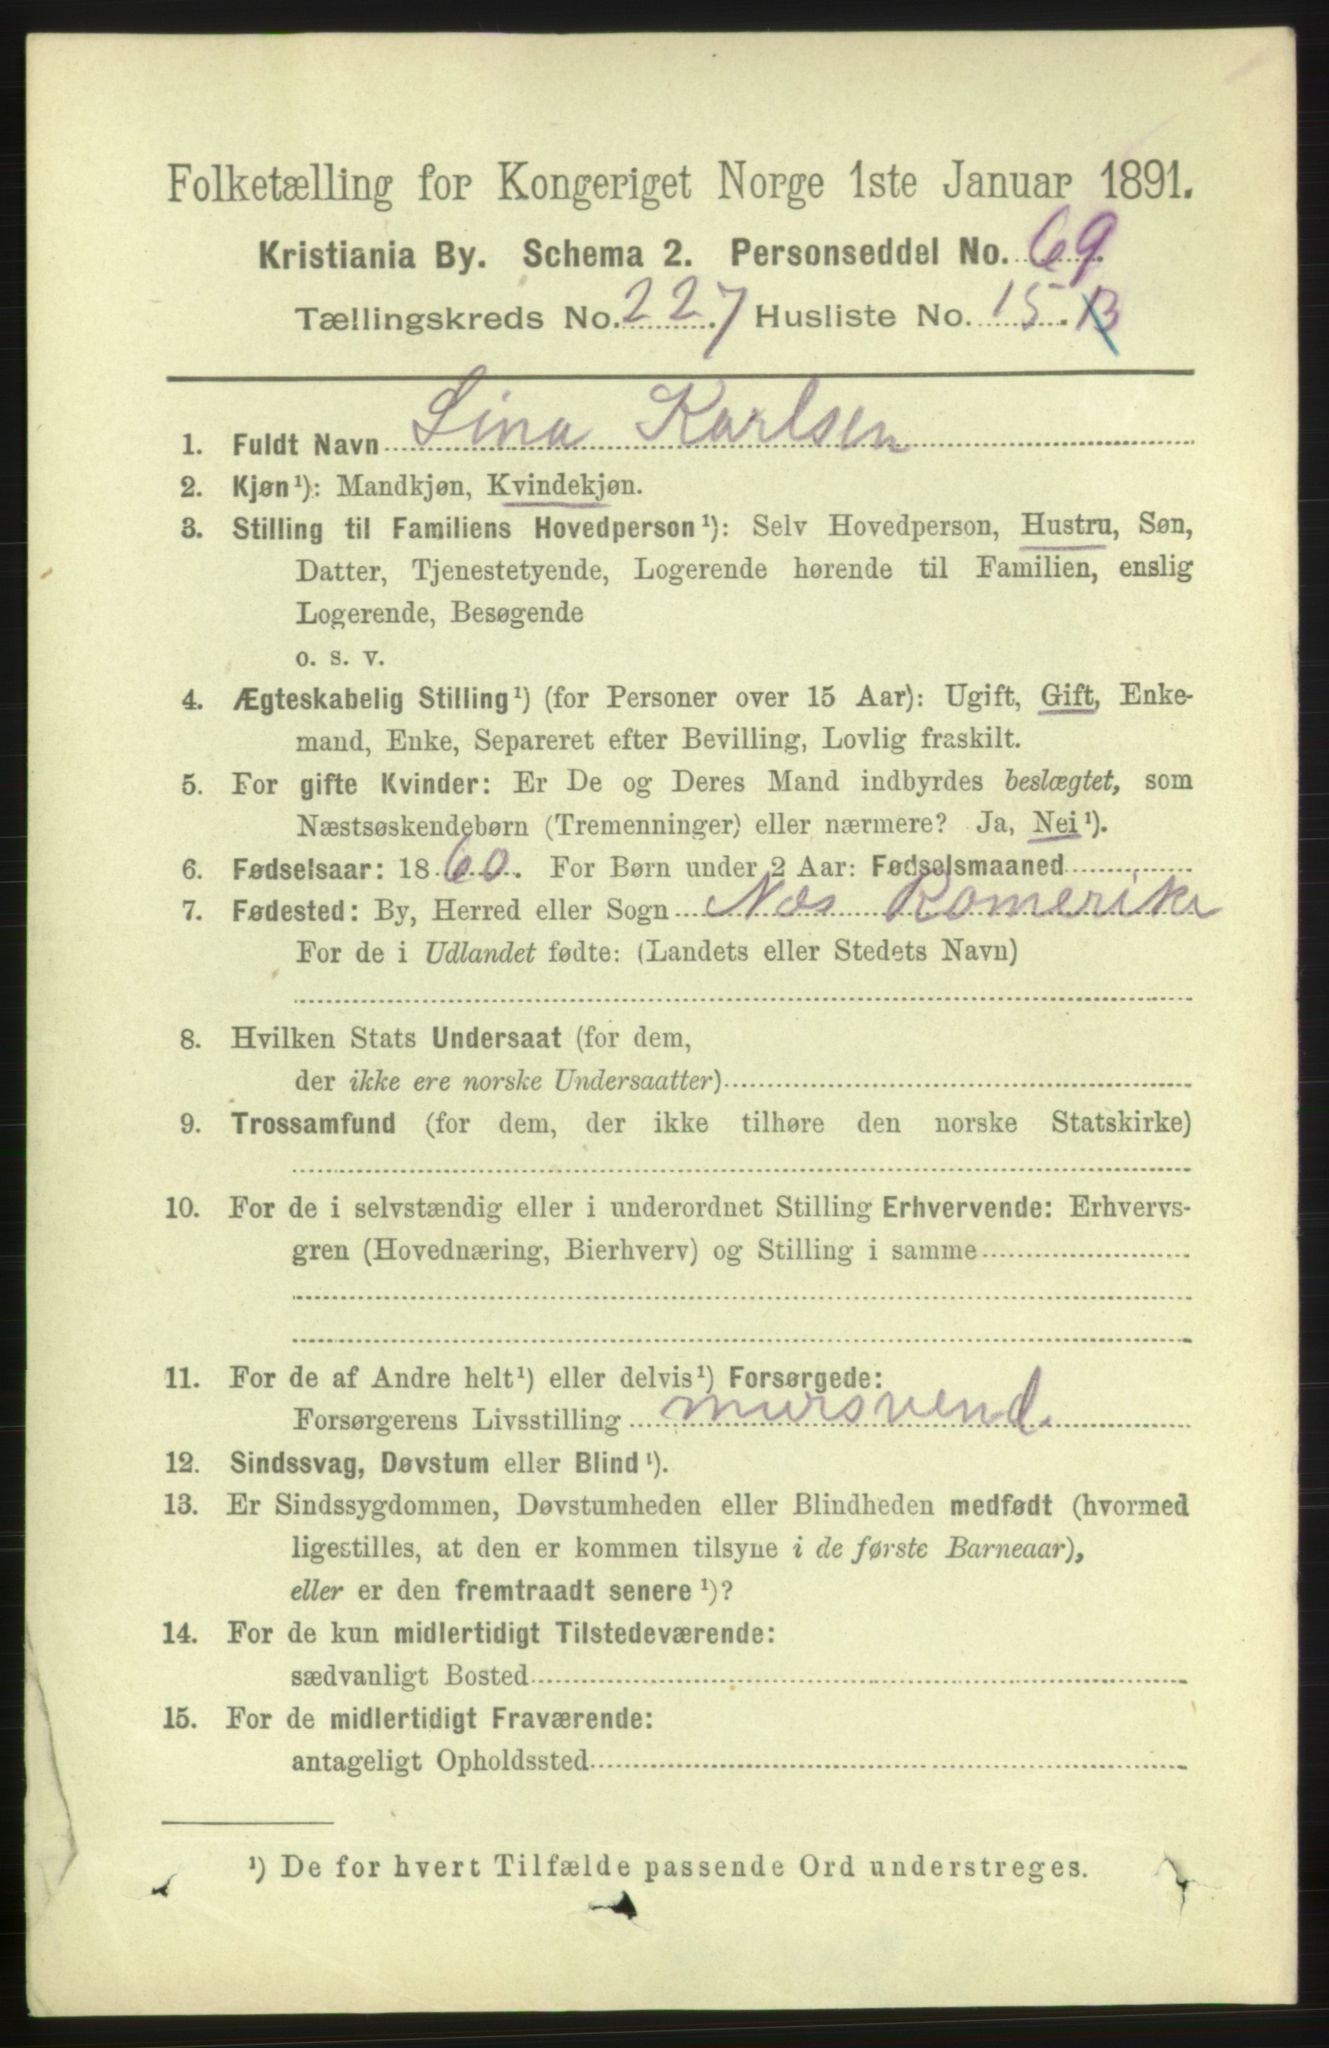 Folketælling for Kongeriget Norge 1ste Januar 1891.
Kristiania By. Schema 2. Personseddel No. 69.
Tællingskreds No. 227 Husliste No. 15.B
1. Fuldt Navn Lina Karlsen
2. Kjøn¹): Mandkjøn, Kvindekjøn.
3. Stilling til Familiens Hovedperson¹): Selv Hovedperson, Hustru, Søn,
Datter, Tjenestetyende, Logerende hørende til Familien, enslig
Logerende, Besøgende
o. s. v.
4. Ægteskabelig Stilling¹) (for Personer over 15 Aar): Ugift, Gift, Enke-
mand, Enke, Separeret efter Bevilling, Lovlig fraskilt.
5. For gifte Kvinder: Er De og Deres Mand indbyrdes beslægtet, som
Næstsøskendebørn (Tremenninger) eller nærmere? Ja, Nei¹).
6. Fødselsaar: 1860. For Børn under 2 Aar: Fødselsmaaned
7. Fødested: By, Herred eller Sogn Næs Romerike
For de i Udlandet fødte: (Landets eller Stedets Navn)
8. Hvilken Stats Undersaat (for dem,
der ikke ere norske Undersaatter)
9. Trossamfund (for dem, der ikke tilhøre den norske Statskirke)
10. For de i selvstændig eller i underordnet Stilling Erhvervende: Erhvervs-
gren (Hovednæring, Bierhverv) og Stilling i samme
11. For de af Andre helt¹) eller delvis¹) Forsørgede:
Forsørgerens Livsstilling mursvend.
12. Sindssvag, Døvstum eller Blind¹).
13. Er Sindssygdommen, Døvstumheden eller Blindheden medfødt (hvormed
ligestilles, at den er kommen tilsyne i de første Barneaar),
eller er den fremtraadt senere¹)?
14. For de kun midlertidigt Tilstedeværende:
sædvanligt Bosted
15. For de midlertidigt Fraværende:
antageligt Opholdssted
¹) De for hvert Tilfælde passende Ord understreges.